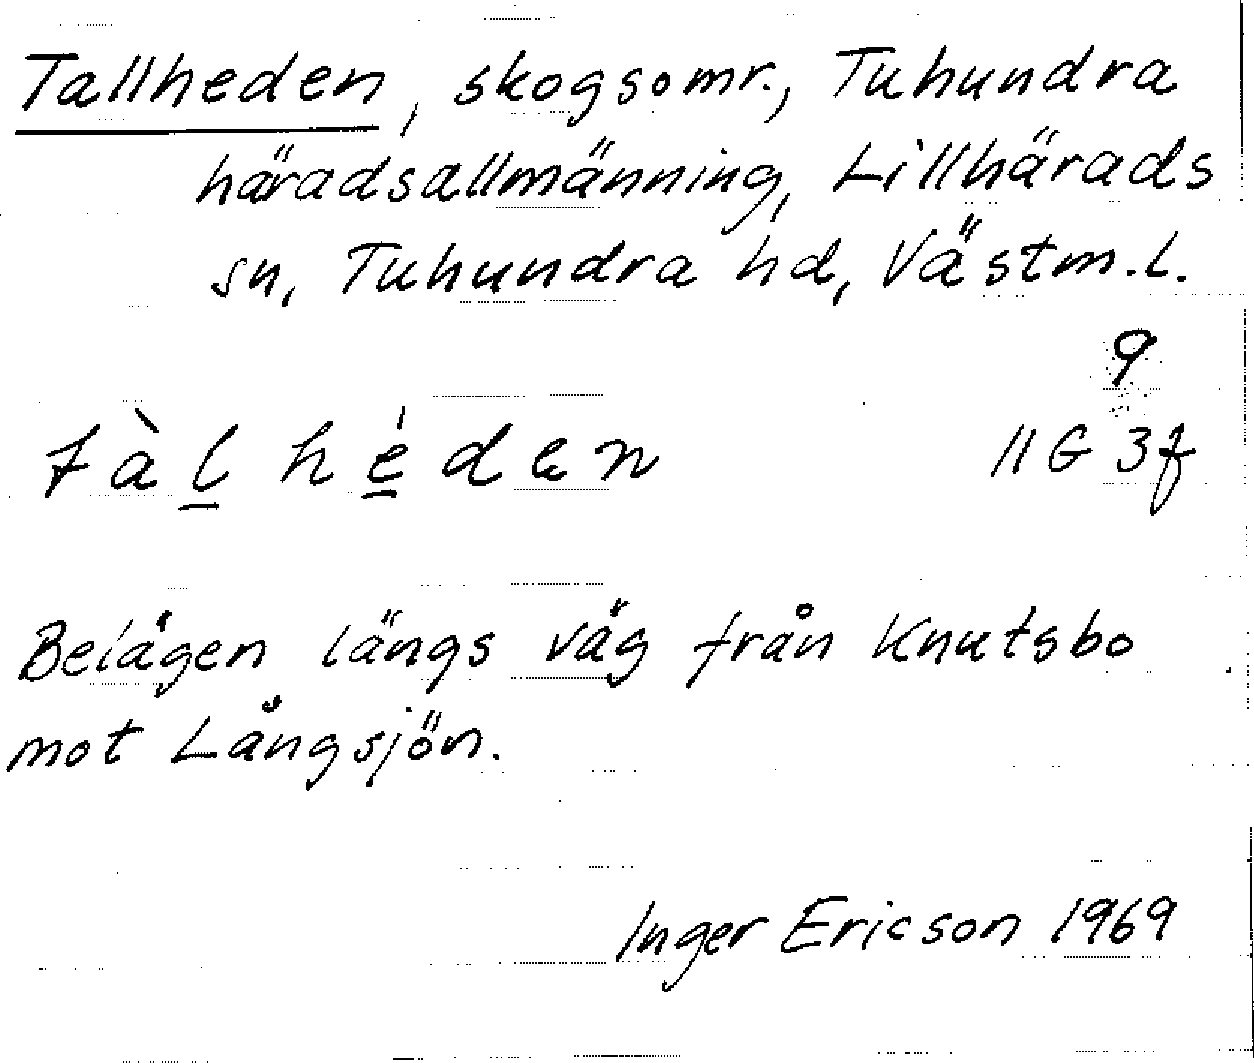 Tallheden, skogsomr., Tuhundra
häradsallmänning, Lillhärads
sn, Tuhundra hd, Västm.l.
9
tàl̲hé̲den
11G 3f
Belägen längs väg från Knutsbo
mot Långsjön.
Inger Ericson 1969